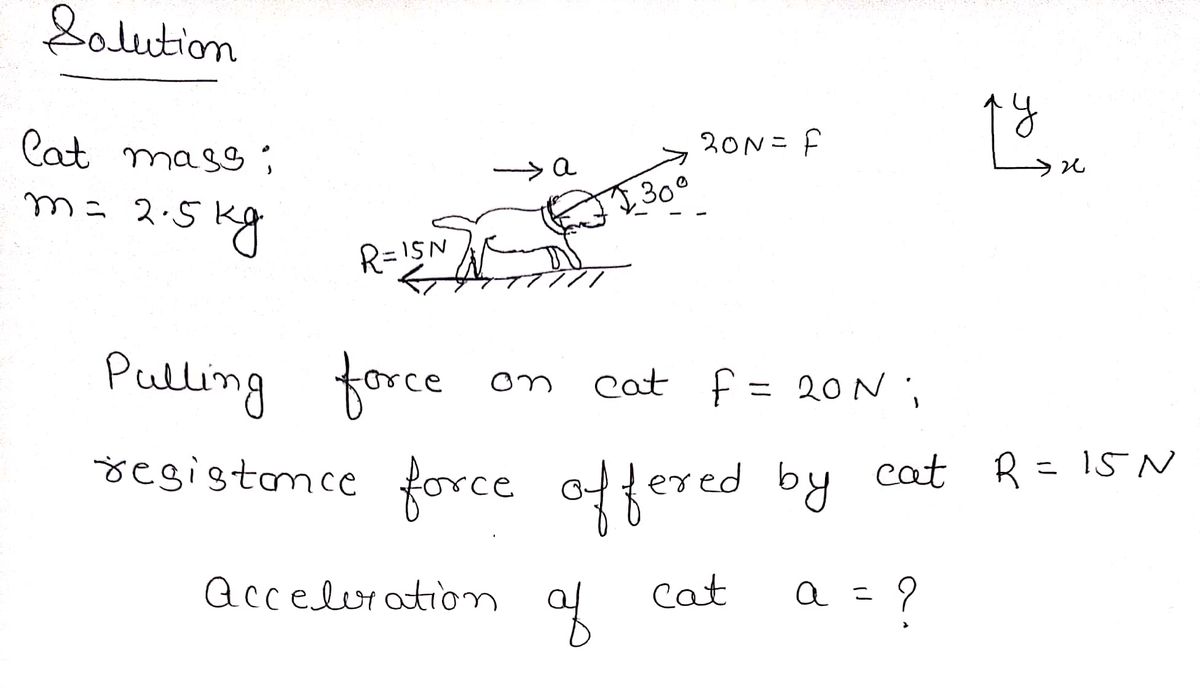 Solution
Cat mass;
m = 2.5 kg
→ a
20N = F
30°
R=15N
y
x
Pulling force on cat F = 20 N;
resistance force offered by cat R = 15 N
acceleration of cat a = ?